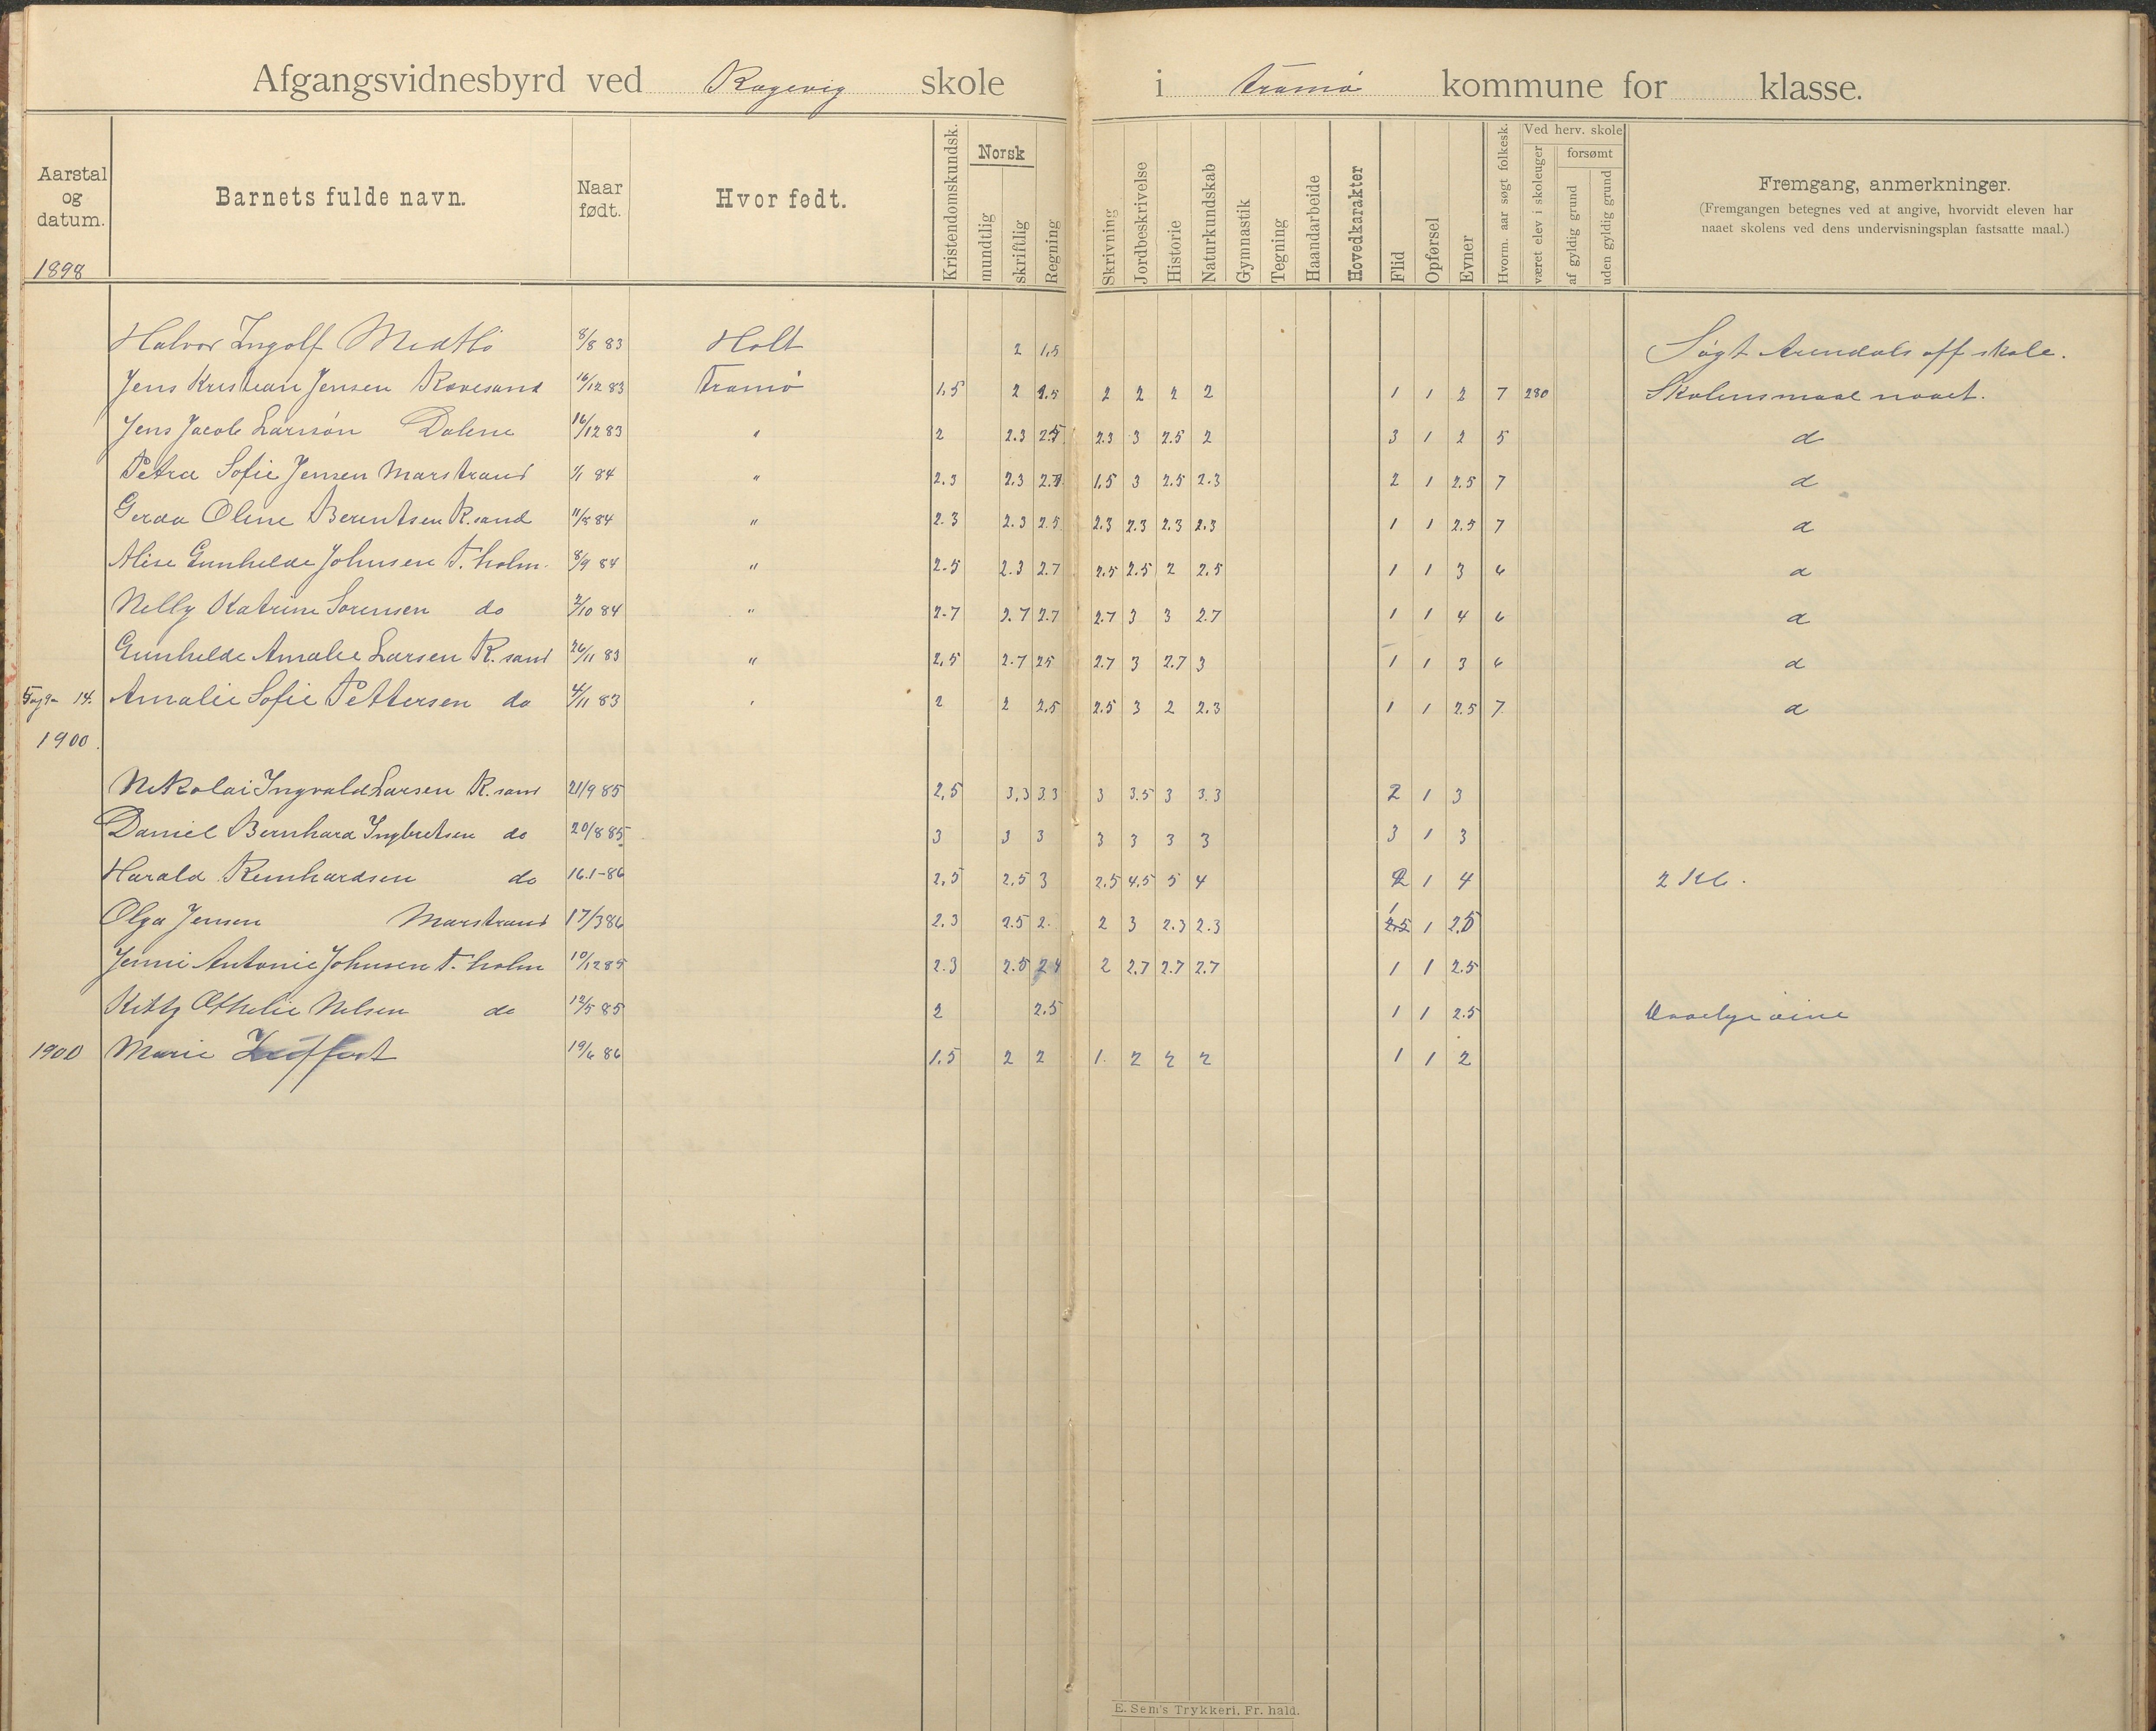 Afgangsvidnesbyrd ved Ragevig skole i Tromø kommune for klasse.
Aarstal og datum. Barnets fulde navn. Naar født. Hvor født. Kristendomskundsk. Norsk mundtlig skriftlig Regning Skrivning Jordbeskrivelse Historie Naturkundskab Gymnastik Tegning Haandarbeide Hovedkarakter Flid Opførsel Evner Hvorm. aar søgt folkesk. Ved herv. skole været elev i skoleuger forsømt af gyldig grund uden gyldig grund Fremgang, anmerkninger.
(Fremgangen betegnes ved at angive, hvorvidt eleven har
naaet skolens ved dens undervisningsplan fastsatte maal.)
1898
Halvor Ingolf 8/8 83 Holt 2 1,5 Søgt Arendals off skole.
Jens Kristian Jensen Revesand 16/12 83 Tromø 1,5 2 1.5 2 2 2 2 1 1 2 7 280 Skolens maal naaet.
Jens Jacob Larsson Dalene 16/12 83 " 2 2.3 2.5 2.3 3 2.5 2 3 1 2 5 d
Petra Sofie Jensen Marstrand 1/1 84 " 2.3 2.3 2.7 1,5 3 2.5 2.3 2 1 2.5 7 d
Gerda Oline Berentsen R.sand 11/8 84 " 2.3 2.3 2.5 2.3 2.3 2.3 2.3 1 1 2.5 7 d
Alise Gunhilde Johnsen T. holm. 8/9 84 " 2.5 2.3 2.7 2.5 2.5 2 2.5 1 1 3 6 d
Nelly Katrine Sørensen do 2/10 84 " 2.7 2.7 2.7 2.7 3 3 2.7 1 1 4 6 d
Gunhilde Amalie Larsen R. sand 26/11 83 " 2,5 2.7 25 2.7 3 2.7 3 1 1 3 6 d
14. Amalie Sofie Pettersen do 4/11 83 " 2 2 2,5 2.5 3 2 2.3 1 1 2.5 7 d
1900.
Nikolai Ingvald Larsen R. sand 21/9 85 2,5 3,3 3.3 3 3.5 3 3.3 2 1 3
Daniel Bernhard Ingbretsen do 20/8 85 3 3 3 3 3 3 3 3 1 3
Harald Reinhardsen do 16.1-86 2,5 2,5 3 2.5 4.5 5 4 2 1 4 2 Kl.
Olga Jensen Marstrand 17/3 86 2.3 2.5 2. 2 3 2.3 2.3 1 1 2.5
Jenni Antonie Johnsen T. holm 10/12 85 2.3 2.5 2 2.7 2.7 2.7 1 1 2.5
Kitty Othelie Nilsen do 12/5 85 2 2.5 1 1 2.5
1900 Marie 19/6 86 1.5 2 2 1. 2 2 2 1 1 2
E. Sem's Trykkeri, Fr. hald.